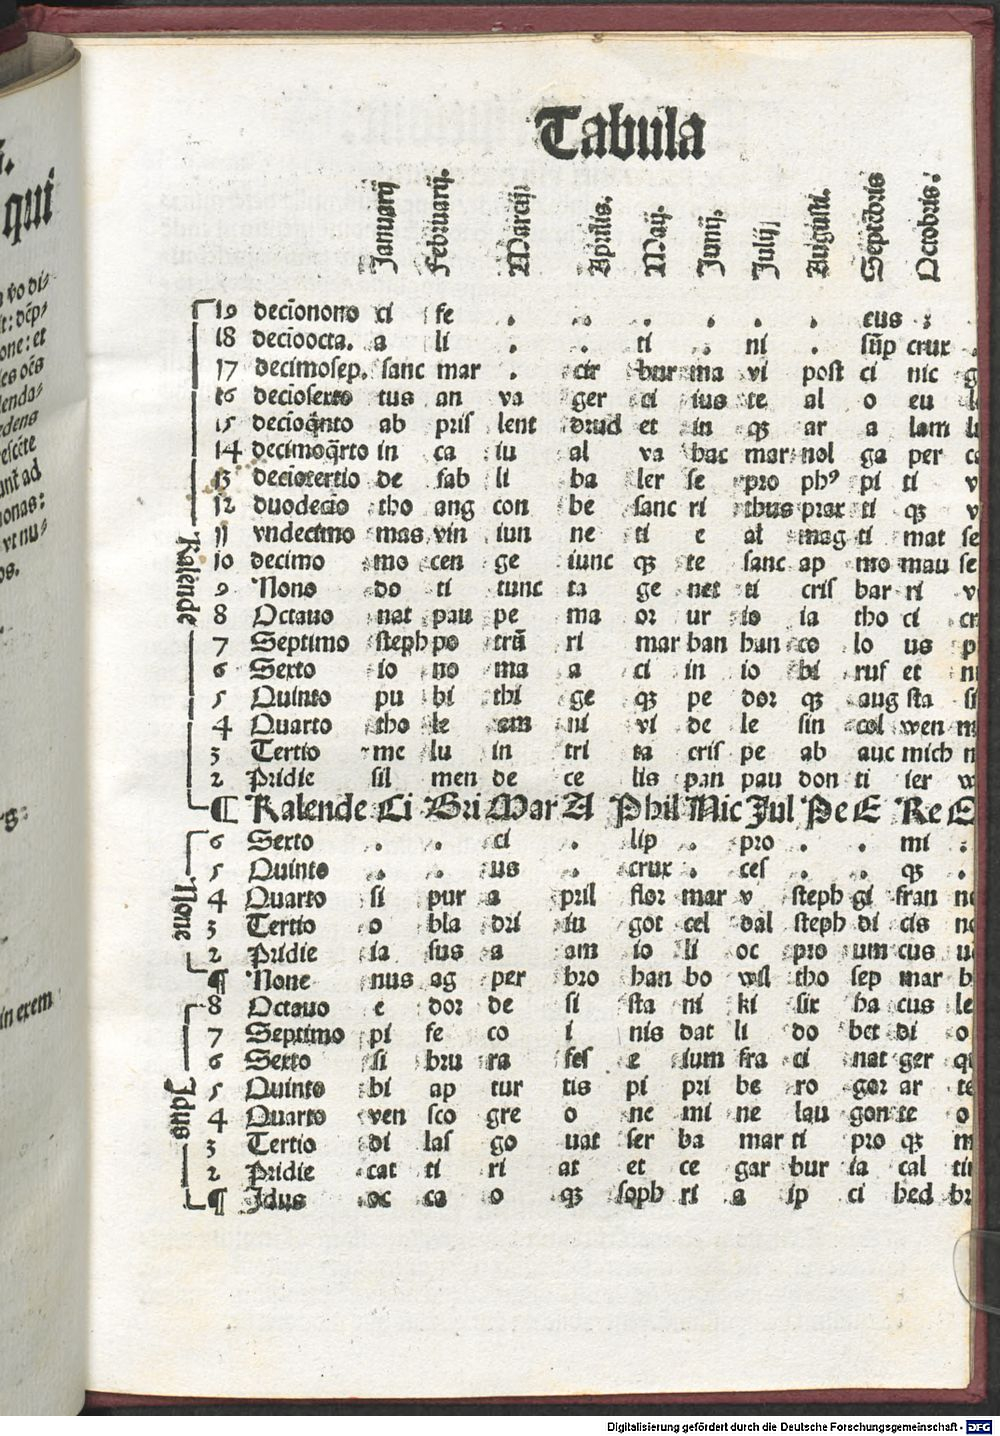 qui
Tabula
Januarij Februarij. Marcij. Aprilis. Maij. Junij. Julij Augusti. Septẽbris Octobris:
19 deciōnono ci fe . . . . . . eus :
18 decīoocta. a li . . ti . ni . sūp crux .
17 decimosep. sanc mar . cir bur ma vi post ci nic g
16 deciosexto tus an va ger ci ius te al o eu
15 decioq̄nto ab pris lent drud et in qȝ ar a lam
14 decimoq̄rto in ca iu al va bac mar nol ga per
13 deciotertio de fab li ba ler se pro phꝰ pi ti v
12 duodecīo tho ang con be sanc ri thus prax ti qȝ v
Kalende 11 vndecimo mas vin iun ne ti e al mag ti mat se
10 decimo mo cen ge iunc qȝ te sanc ap mo mau se
9 Nono do ti tunc ta ge net ti cris bar ri v
8 Octauo nat pau pe ma or ur io ia tho ci cr
7 Septimo steph po trū ri mar ban han co lo us p
6 Sexto io no ma a ci in io bi ruf et n
5 Quinto pu bi thi ge qȝ pe dor qȝ aug sta si
4 Quarto tho le em ni vi de le sin col wen m
3 Tertio me lu in tri ta cris pe ab auc mich n
2 Pridie sil men de ce lis pan pau don ti ier w
¶ Kalende Ci Bri Mar A Phil Nic Jul Pe E Re
6 Sexto . . ci . lip . pro . . mi :
5 Quinto . . us . crux . ces . . qȝ .
None 4 Quarto si pur a pril flor mar v steph gi fran
3 Tertio o bla dri iu got cel dal steph di cis
2 Pridie ia sus a am io li oc pro um cus
¶ None nus ag per bro han bo wil tho sep mar b
8 Octauo e dor de si sta ni ki six ba cus le
7 Septimo pi fe co i nis dat li do bet di o
6 Sexto si bru ra fes e ium fra ci nat ger
Jdus 5 Quinto bi ap tur tis pi pri be ro gor ar te
4 Quarto ven sco gre o ne mi ne lau gon te o
3 Tertio di las go uat ser ba mar ti pro qȝ m
2 Pridie cat ti ri at et ce gar bur ia cal
¶ Jdus oc ca o qȝ soph ri a ip ci hed
in exem
Digitalisierung gefördert durch die Deutsche Forschungsgemeinschaft - DFG